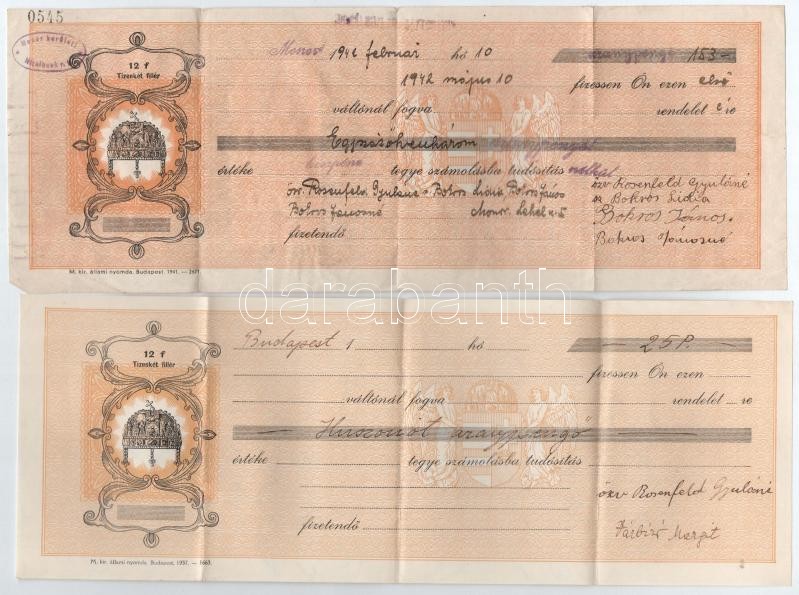 0545
Monor 1942 február hó 10 aranypengő 153-
12 f
Tizenkét fillér
1942 május 10 fizessen Ön ezen első
váltónál fogva rendelet e re
Egyszázötvenhárom aranypengőt
értéke készpénz tegye számolásba tudósítás nélkül
özv Rosenfeld Gyuláné Bokros Lidia, Bokros János
Bokros Jánosné Monor, Lehel u. 5
özv Rosenfeld Gyuláné
Bokros Lidia
Bokros János.
Bokros Jánosné
fizetendő
M. kir. állami nyomda. Budapest. 1941. — 2671.
darabanth
Budapest 1 hó — 25 P. —
12 f
Tizenkét fillér
fizessen Ön ezen
váltónál fogva rendelet re
— Huszonöt aranypengő —
értéke tegye számolásba tudósítás
özv Rosenfeld Gyuláné
fizetendő
Margit
M. kir. állami nyomda. Budapest. 1937. — 1663.